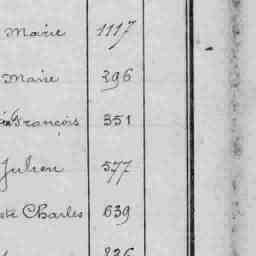 Marie 1117
Marie 296
François 351
Julien 577
Charles 639